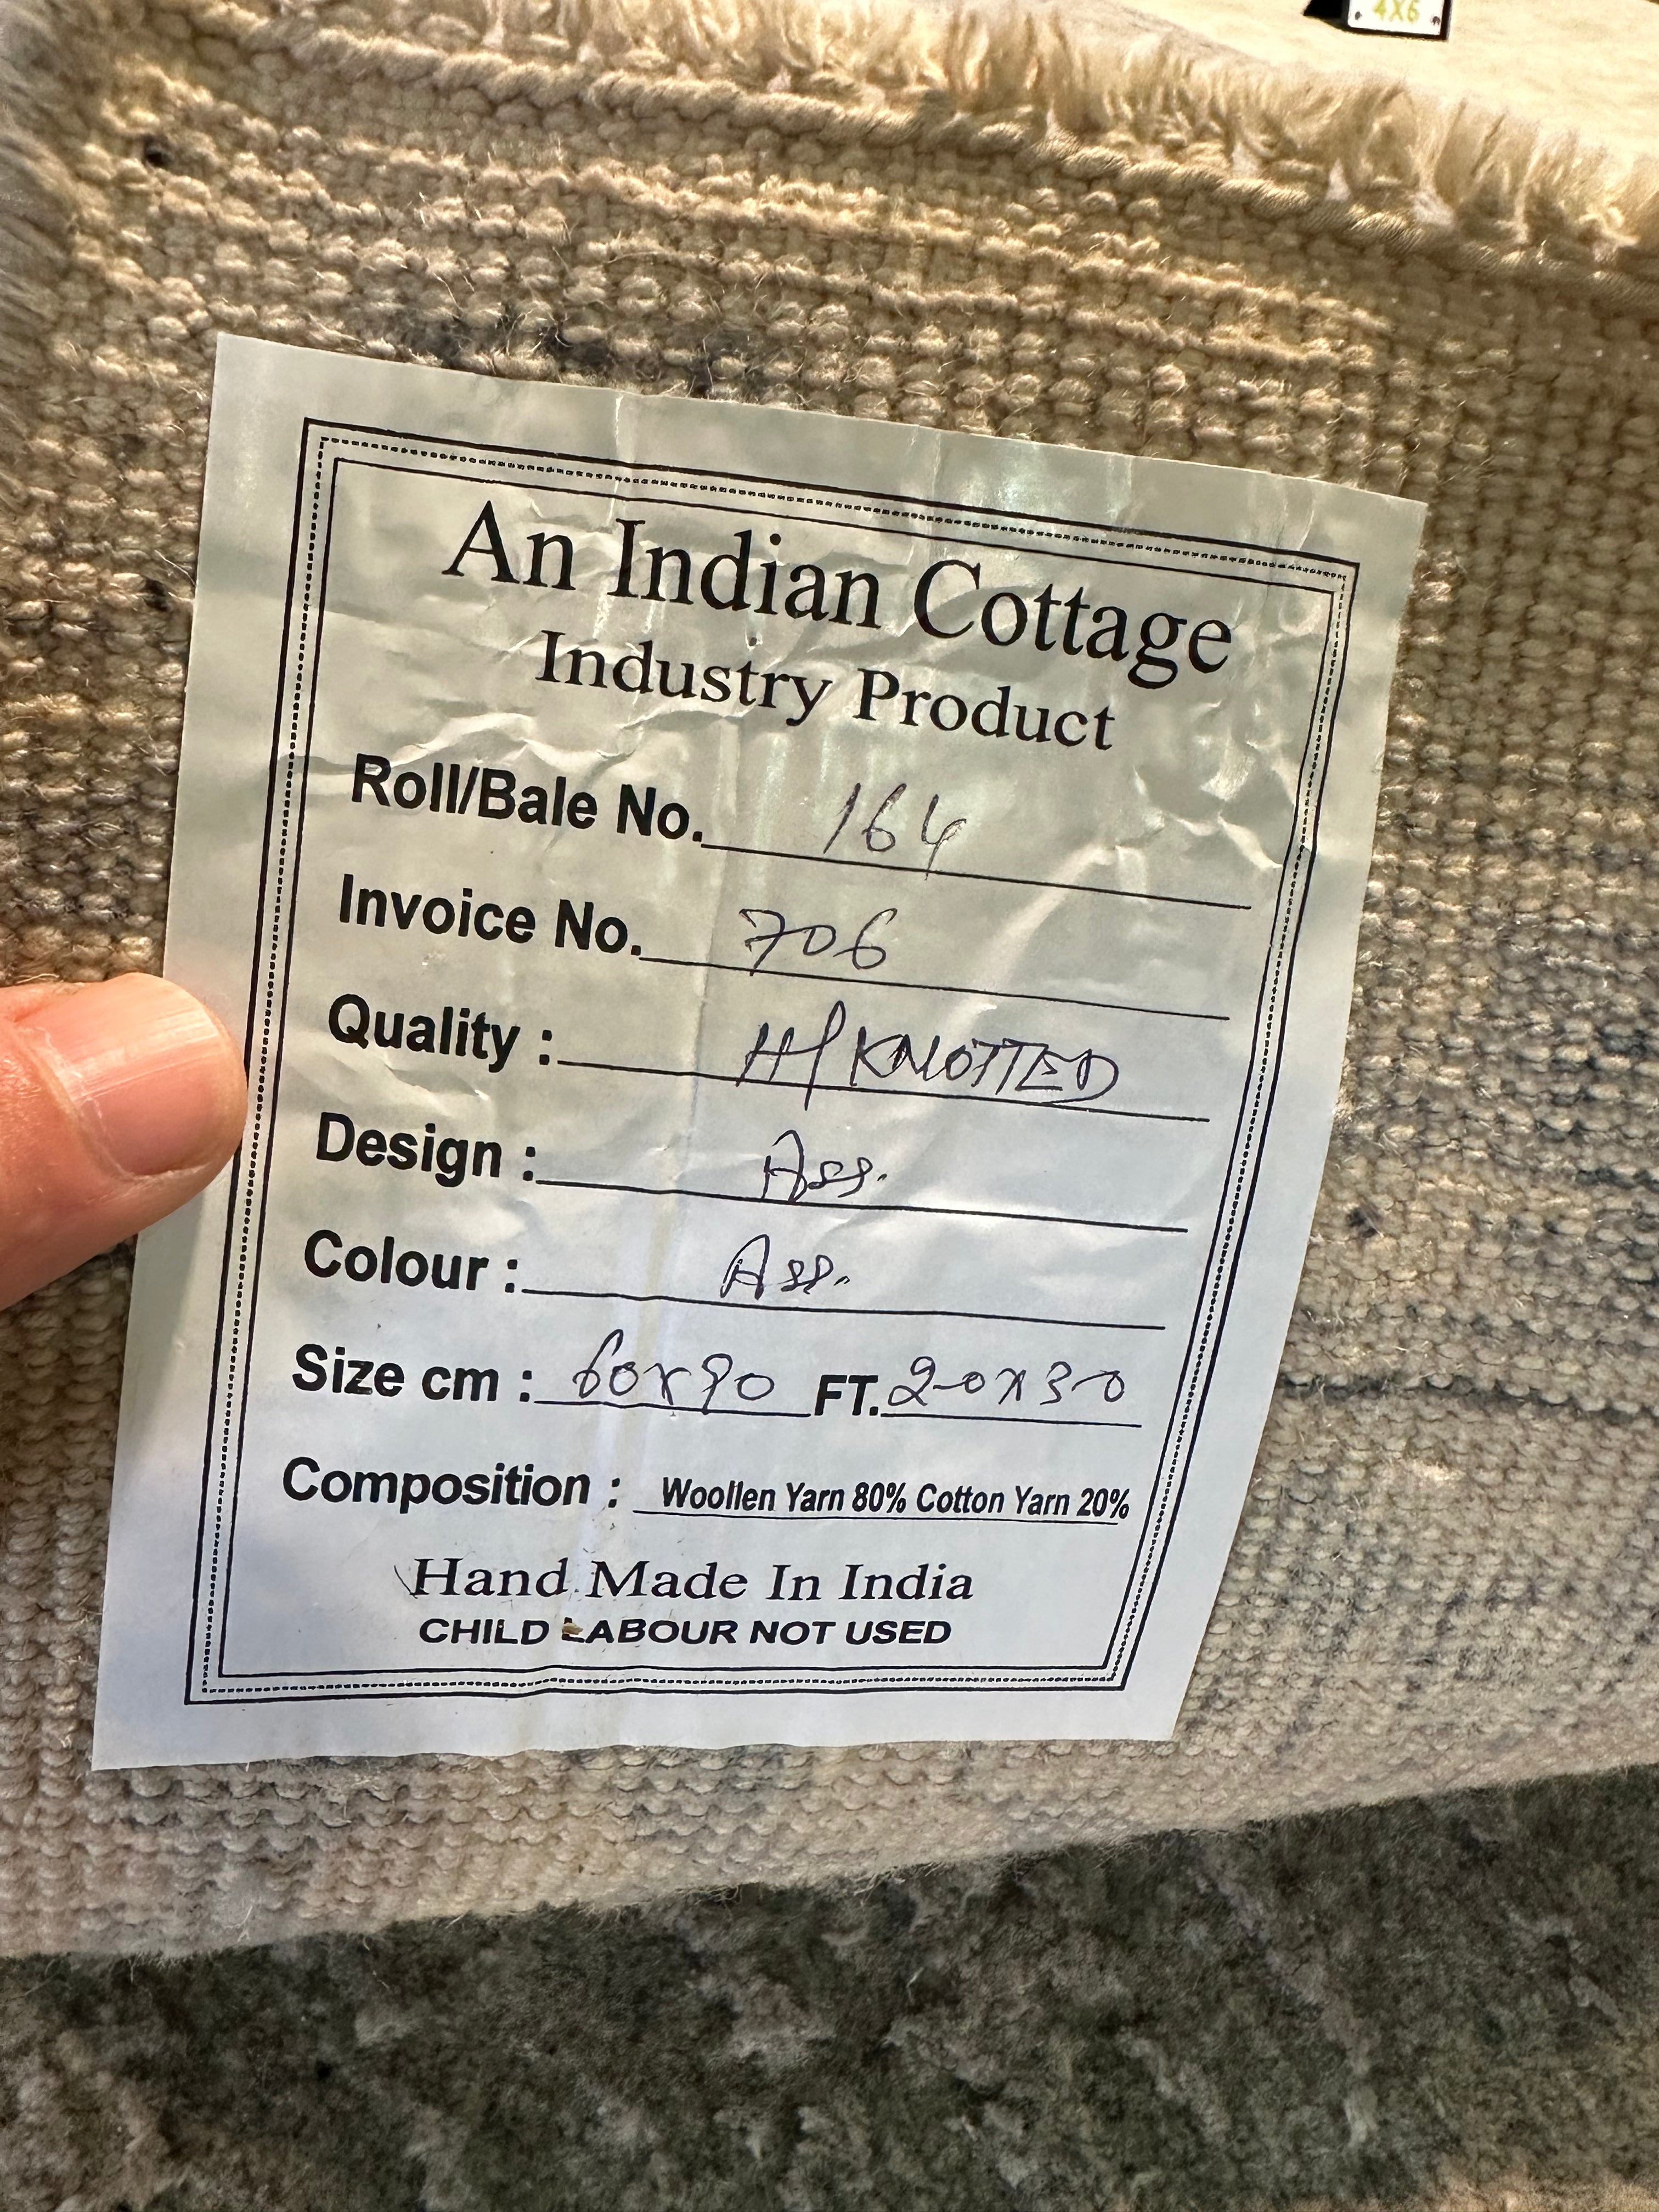 4X6
An Indian Cottage
Industry Product
Roll/Bale No. 164
Invoice No. 706
Quality : H/KNOTTED
Design : Ass.
Colour : Ass.
Size cm : 60x90 FT. 2-0x3-0
Composition : Woollen Yarn 80% Cotton Yarn 20%
Hand Made In India
CHILD LABOUR NOT USED